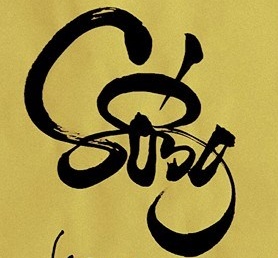 Sống